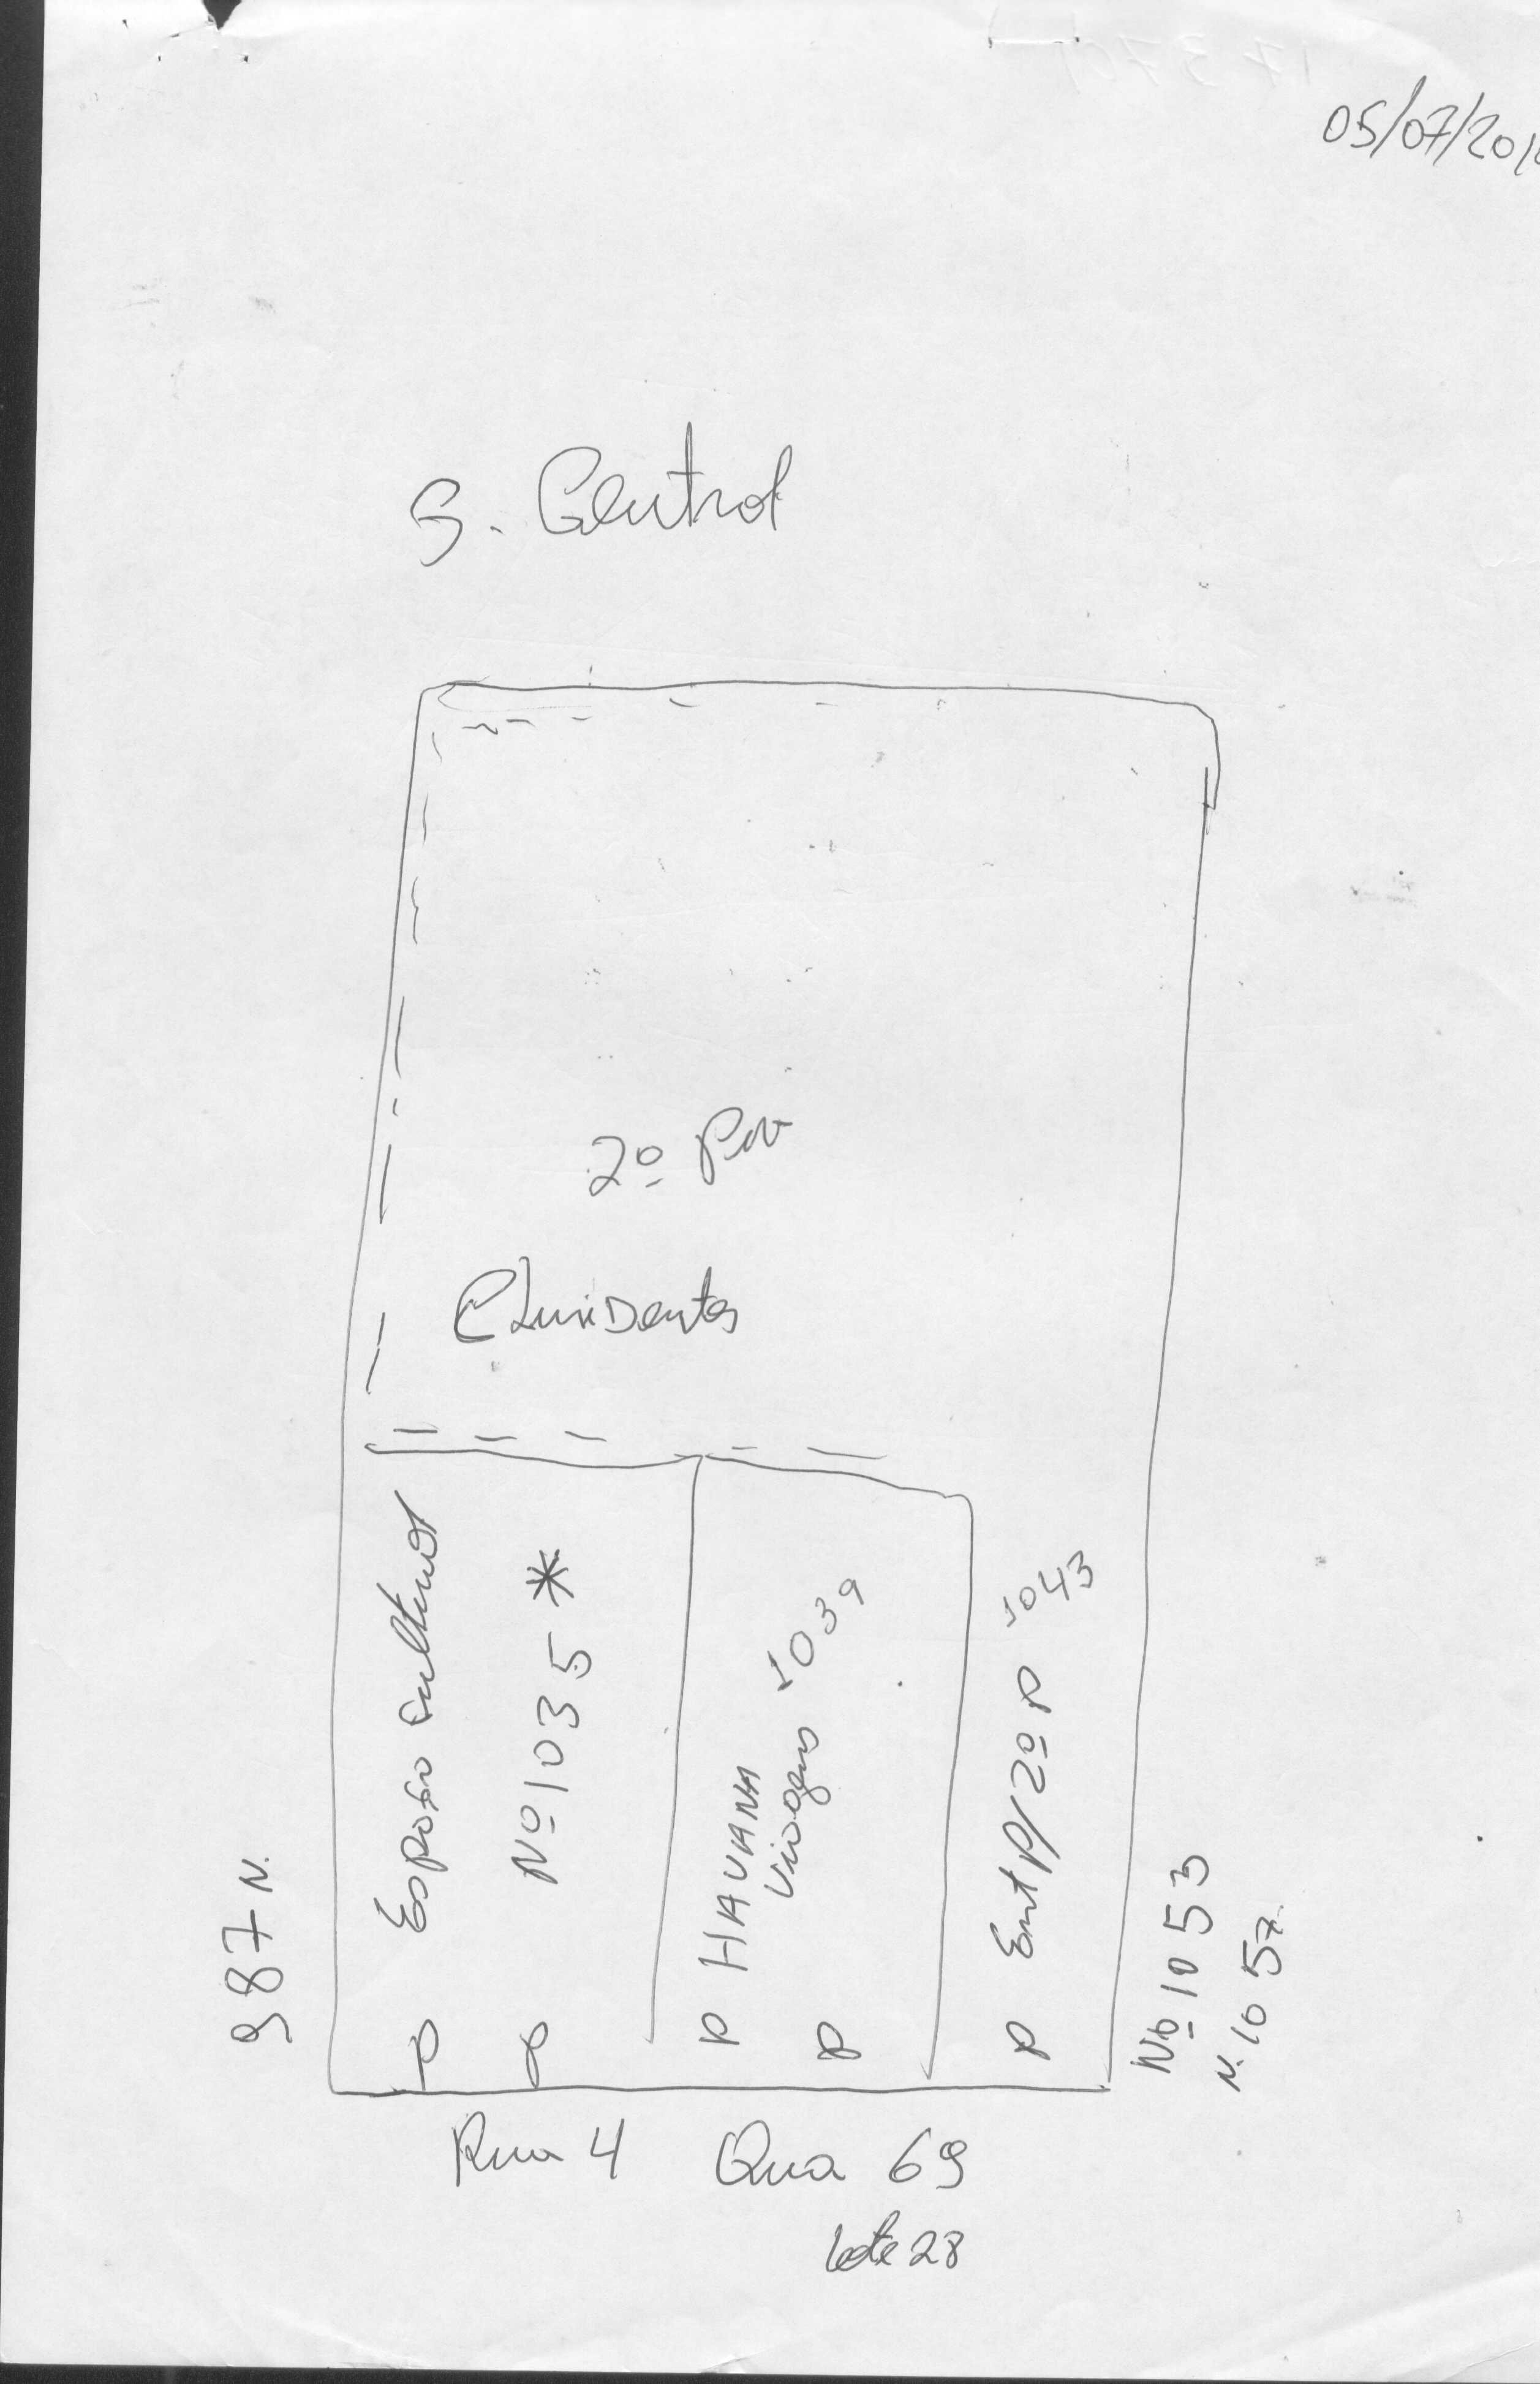 05/07/201
S. Central
2º Pav
Clinidentes
Espaço cultural
Nº 1035 *
HAVANA
Viagens 1039
Ent p/ 2º P 1043
987 N.
Nº 1053
N. 1057
P
P
P
Rua 4 Qua 69
Lote 28